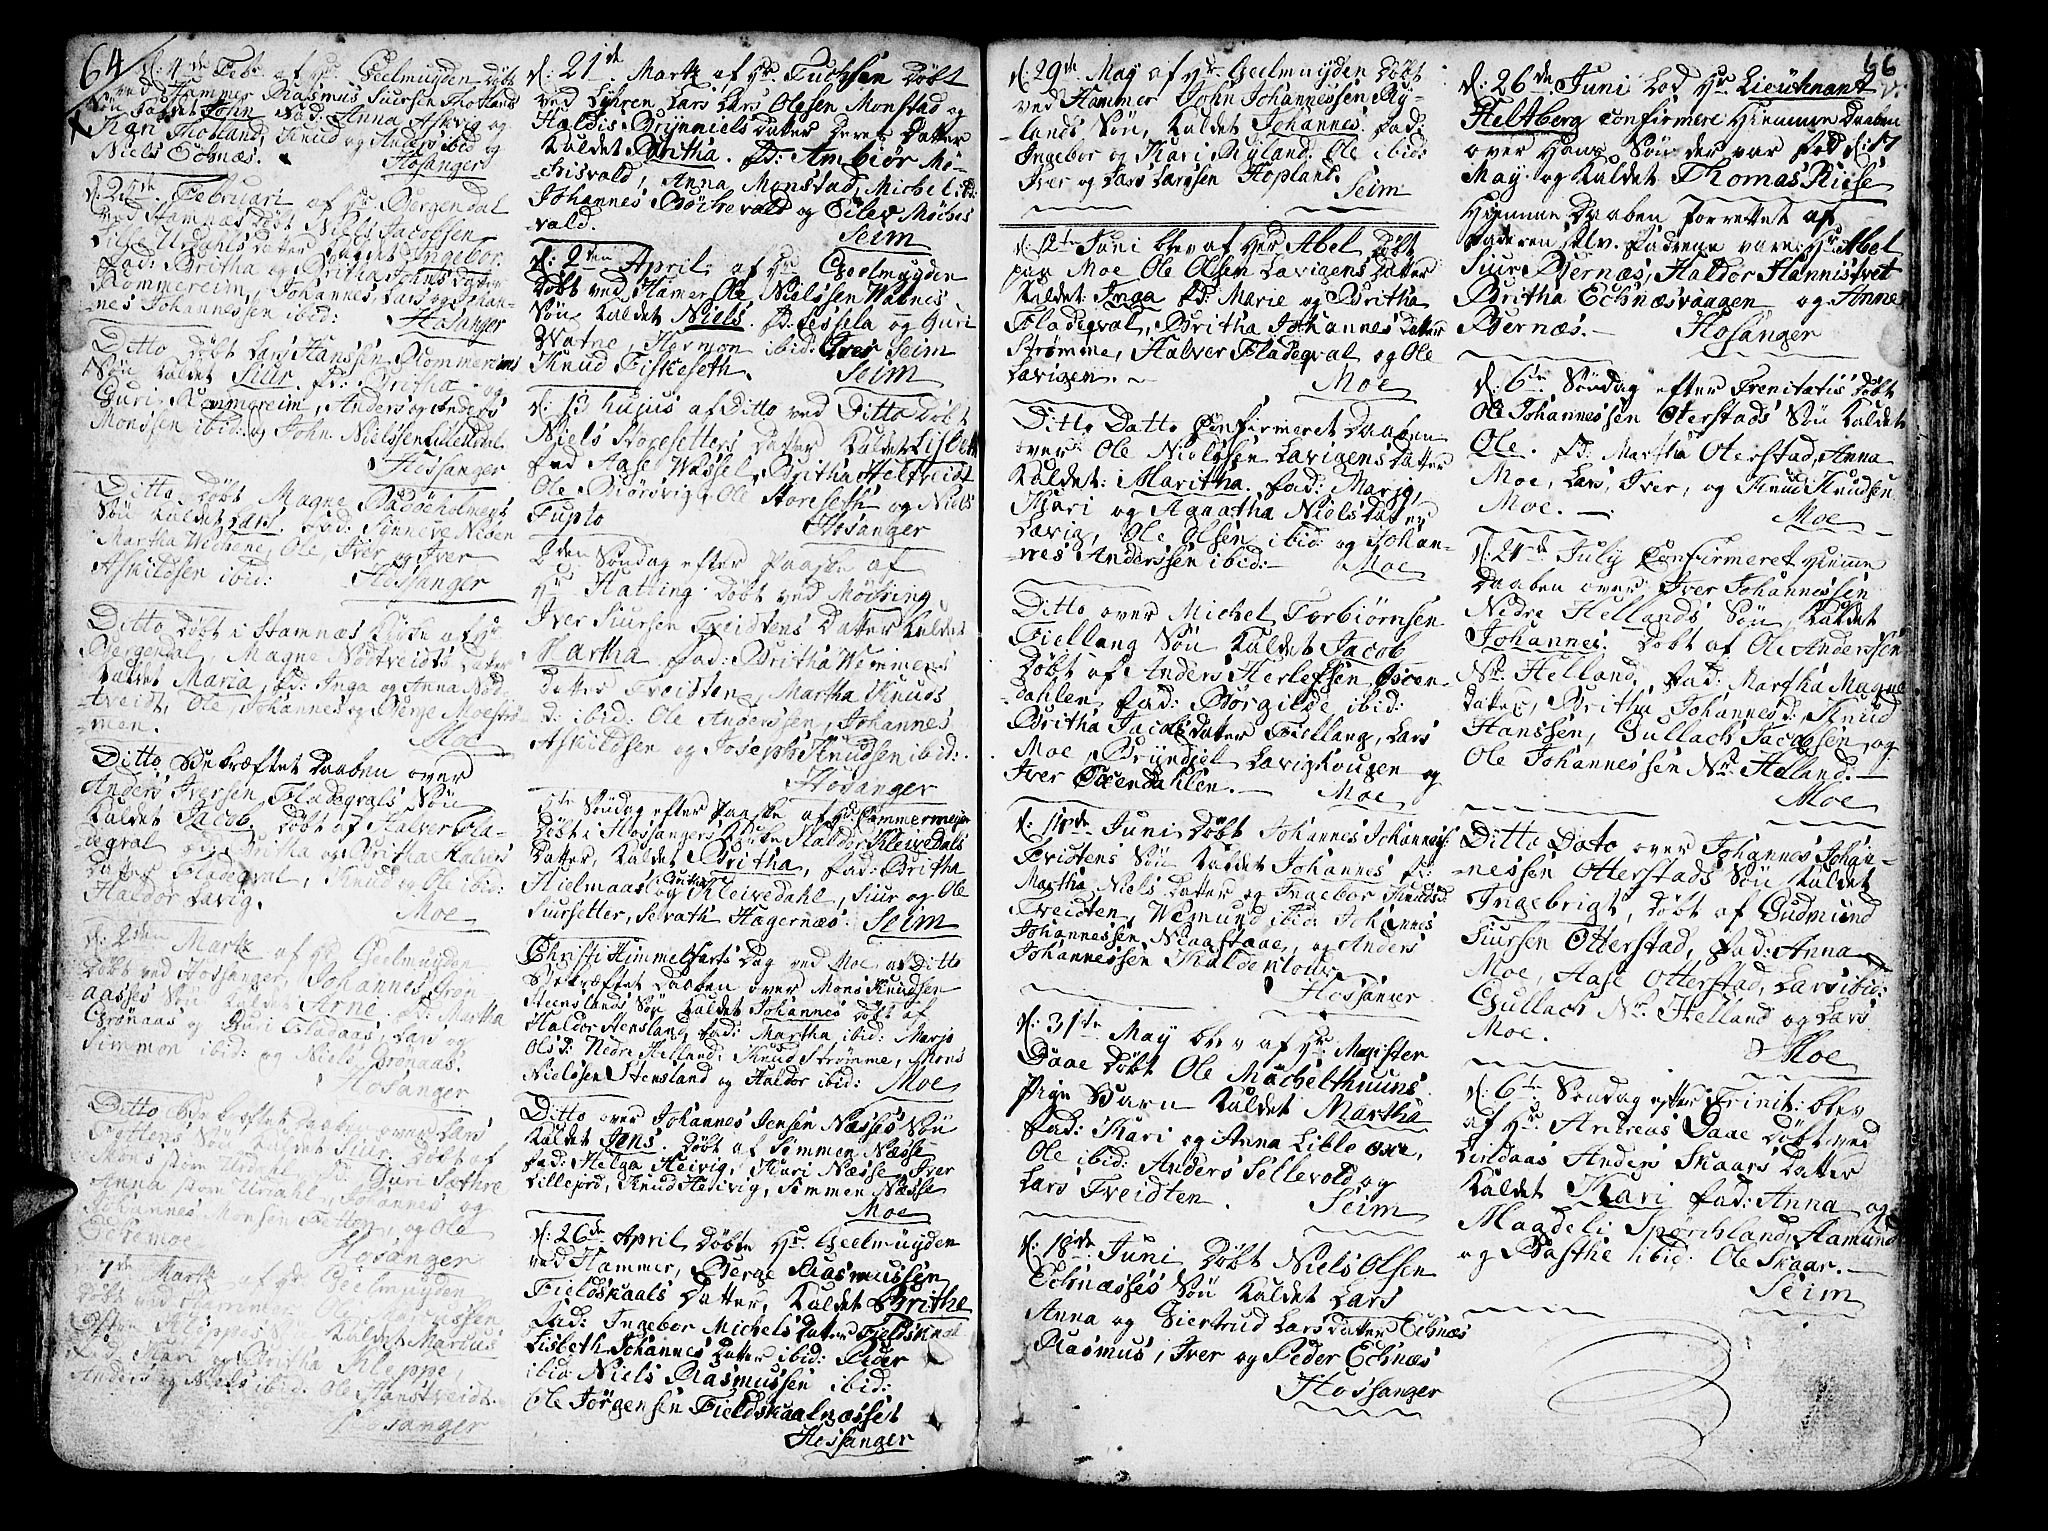 64
d: 4de Febr af Hr Geelmuyden döbt
ved Hammer Rasmus Siursen Tholands
Sön kaldet John. Fad: Anna Askvig og
Kari Tholand, Knud og Anders ibid og
Niels Echnæs.
Hosanger
Februari af Hr Bergendal
ved Stamnæs döbt Niels Jacobsen
datter kaldet Ingebor.
Fad: Britha og Britha Johns datter
Rommereim, Johannes, Lars og Johan-
nes Johannessen ibid:
Hosanger
Ditto döbt Lars Hanssen Rommereims
Sön kaldet Siur. fd: Britha og
Guri Rommereim, Anders og Anders
Monssen ibid: og John Nielssen Eidsdal.
Hossanger
Ditto döbt Magne
Sön kaldet Lars. Fad: Synneve
Martha Ole, Iver og Iver
Askildsen ibid:
Hossanger
Ditto döbt i Stamnæs Kirke af Hr
Bergendal, Magne Nödtveidts datter
kaldet Maria, fd: Inga og Anna Nöd-
tveidt, Ole, Johannes og Berge Moeströ-
men.
Moe
Ditto Bekræftet Daaben over
Anders Iversen Fladeqvals Sön
kaldet Jacob. döbt af Halver Fla-
deqval Britha og Britha Halvers
datter Fladeqval, Knud og Ole ibid:
Haldor Lavig.
Moe
d: 2den Martz af Hr Geelmuyden
döbt ved Hossanger, Johannes Grön-
aases Sön kaldet Arne. fd: Martha
Grönaas og Guri Fladaas, Lars og
Simmon ibid: og Niels Grönaas.
Hosanger
Ditto Bekræftet Daaben over Lars
Fottens Sön kaldet Siur. Döbt af
Mons
Anna Johannes og
Johannes Monsen Fetten, og Ole
Echemoe
Hosanger
7de Martz af Hr Geelmuyden
döbt ved Hammer Ole
Kleppes Sön kaldet Marcus
Fad: Kari og Britha Kleppe,
Anders og Niels ibid: Ole Hanstveidt.
Hosanger
d: 21de Martz af Hr Fuchsen Döbt
ved Lyhren Lars Lars Olesen Monstad og
Haldis Brynniels Datter deres Datter
kaldet Britha. fd: Ambiör Mö-
chisvald, Anna Monstad, Michel ibd:
Johannes Böchevald og Eilev Möches
vald.
Seim
d: 2den April af Hr Geelmuyden
Döbt ved Hamer Ole Nielssen Watnes
Sön kaldet Niels. fd. Sessela og Guri
Watne, Hermon ibid: Iver Seim
Knud Fiskeseth.
Seim
d: 13 hujus af Ditto ved Ditto Döbt
Niels Storesetters datter kaldet Lisbeth
fad Aase Wassel, Britha Heltveidt
Ole Biörsvig, Ole Storeseth og Niels
Hosanger
2den Söndag efter Paaske af
Hr Hatting döbt ved Möhring
Iver Siursen Tveidtens Datter kaldet
Martha fad: Britha Wemmens
datter Tveidten, Martha Knuds
d: ibid: Ole Anderssen, Johannes
Askildsen og Joseph Knudsen ibid:
Hosanger
5te Söndag efter Paaske af Hr Cammermeyer
döbt i Hossangers Kirke Haldor Kleivedals
datter, kaldet Britha, fad: Britha
Hielmaas og Kleivedahl, Siur og Ole
Siursetter, Sevath Hagernæs.
Seim
Christi Himmelfarts Dag ved Moe af Ditto
Bekræftet Daaben over Mons Knudsen
Stenslands Sön kaldet Johannes döbt af
Haldor Stensland, fad: Martha ibid: Marjo
Ols d: Nedre Helland, Knud Strömme, Mons
Nielssen Stensland og Haldor ibid:
Moe
Ditto over Johannes Jensen Næsses Sön
kaldet Jens. döbt af Semmen Næsse
fad: Helga Heivig, Kuri Næsse, Iver
Lillejord, Knud Hedivig, Semmen Næsse
Moe
d: 26de April Döbte Hr Geelmuyden
ved Hammer, Berge Rasmussen
Fieldskaals Datter, kaldet Brithe
Fad: Ingebor Michels Datter Fieldskaal
Lisbeth Johannes Datter ibid: Peder
ibid Niels Rasmussen ibid:
Ole Jörgensen Fieldskaalnæsset
Hossanger
d: 29de May af Hr Geelmuyden Döbt
ved Hammer John Johannessen Ry-
lands Sön, kaldet Johannes. fad:
Ingebor og Kari Ryland. Ole ibid:
Iver og Lars Larssen Hopland.
Seim
d: 12te Juni blev af Her Abel Döbt
paa Moe Ole Olsen Lavigens datter
kaldet Inga fd: Marie og Britha
Fladeqval, Britha Johannes datter
Strömme, Halver Fladeqval og Ole
Lavigen.
Moe
Ditto Datto Confirmeret Daaben
over Ole Nielssen Lavigens datter
kaldet: Maritha. fad: Marjo,
Kari og Agaatha Niels datter
Lavig, Ole Olsen ibid: og Johan-
nes Anderssen ibid:
Moe
Ditto over Michel Torbiörnsen
Fiellang Sön kaldet Jacob
Döbt af Anders Herlefsen Oxen-
dahlen. fad: Borgilde ibid:
Britha Jacobsdatter Fiellang, Lars
Moe, Bryndjel Lavighougen og
Iver Oxendahlen.
Moe
d: 11de Juni Döbt Johannes Johannes
Tvidtens Sön kaldet Johannes fd:
Martha Niels datter og Ingebor Knudsd:
Tveidten, Wemund ibid: Johannes
Johannessen og Anders
Johannessen
Hossanger
d: 31te May blev af Hr Magister
Daae Döbt Ole Michelthuuns
Pige Barn kaldet Martha
fad: Kari og Anna Lille oxe,
Ole ibid: Anders Sellevold og
Lars Tveidten.
Seim
d: 18de Juni Döbt Niels Olsen
Echnæsses Sön kaldet Lars
Anna og Giertrud Larsdatter Echnæs
Rasmus, Iver og Peder Echnæs
Hossanger
66
d: 26de Juni Lod Hr Lieutnant v:
Heltberg confirmere Hiemme Daaben
over Hans Sön der var föd d: 17
May og kaldet Thomas Riise
Hiemme Daaben forrettet af
faderen selv. fadrene vare: Hr Abel
Siur Biernæs, Haldor Hannisdvet
Britha Echnæsvaagen og Anne
Biernæs.
Hosanger
d: 6te Söndag efter Trenitatis döbt
Ole Johannessen Oterstads Sön kaldet
Ole. fd: Martha Oterstad, Anna
Moe, Lars, Iver, og Knud Knudsen
Moe.
Moe
d: 21de July Confirmeret Hiemme
Daaben over Iver Johannessen
Nedre Hellands Sön, kaldet
Johannes. Döbt af Ole Anderssen
Nr. Helland, fad: Martha Magne
datter, Britha Johannesd: Knud
Hanssen, Gullach Jacobsen, og
Ole Johannessen Nr. Helland.
Moe
Ditto Dato over Johannes Johan-
nessen Otterstads Sön kaldet
Ingebrigt, döbt af Gudmund
Siursen Otterstad, fad: Anna
Moe, Aase Otterstad, Lars ibid:
Gullach Nr. Helland og Lars
Moe.
Moe
d: 6te Söndag efter Trinit: blev
af Hr Andreas Daae Döbt ved
Lindaas Anders Skaars datter
kaldet Kari fad: Anna og
Magdeli Spörchland, Hamund
og Basthe ibid: Ole Skaar.
Seim